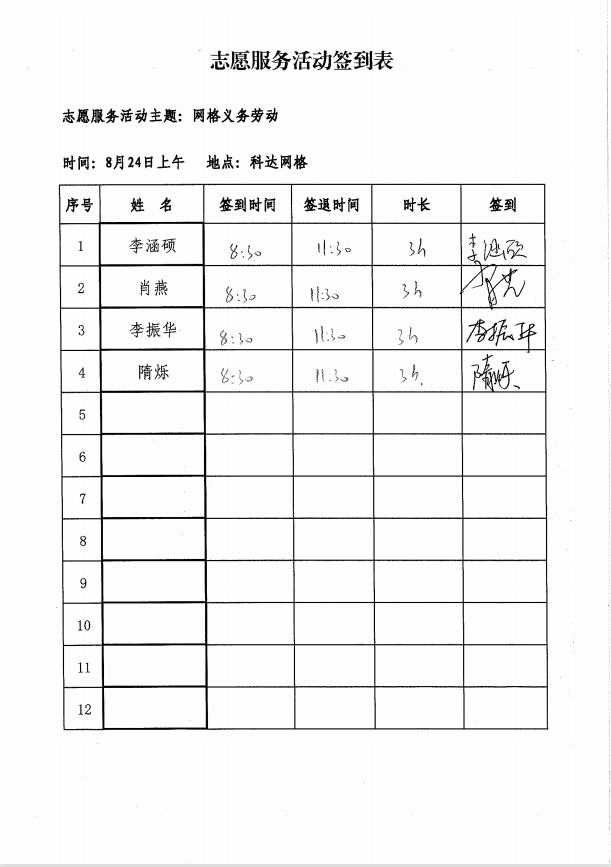 志愿服务活动签到表
志愿服务活动主题：网格义务劳动
时间：8月24日上午 地点：科达网格
序号 姓 名 签到时间 签退时间 时长 签到
1 李涵硕 8:30 11:30 3h 李涵硕
2 肖燕 8:30 11:30 3h
3 李振华 8:30 11:30 3h 李振华
4 隋烁 8:30 11:30 3h. 隋烁
5
6
7
8
9
10
11
12